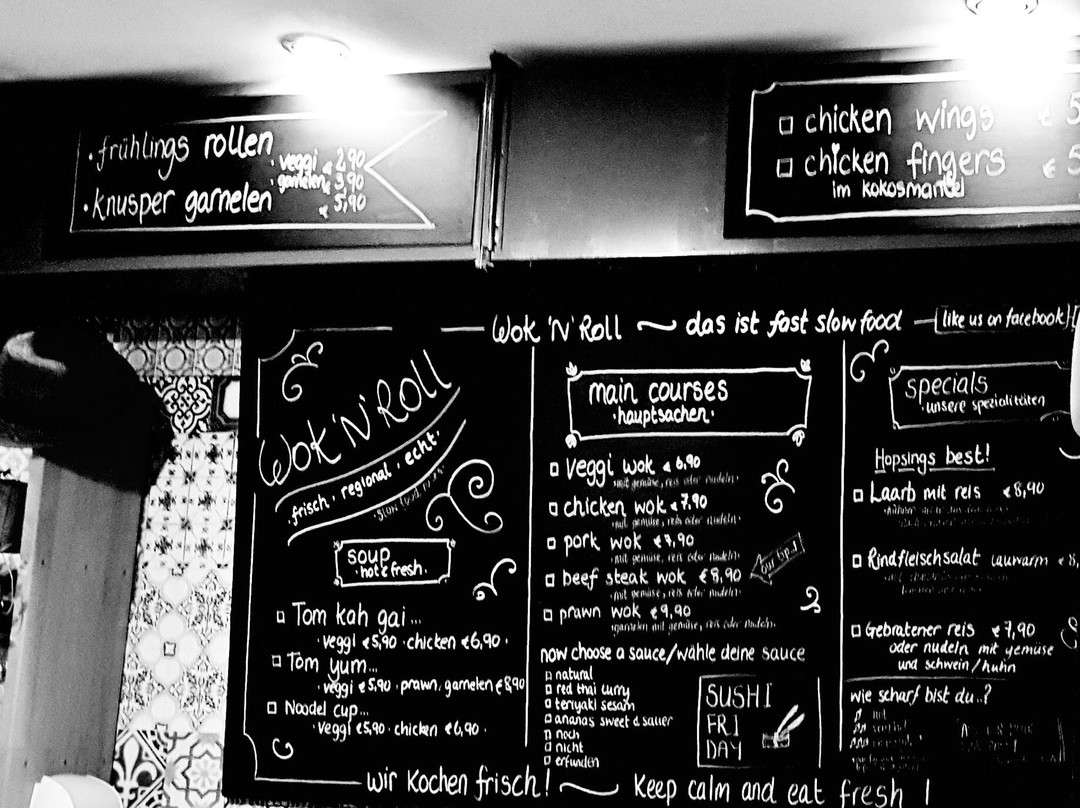 · frühlings rollen
· veggi € 2,90
· garnelen € 3,90
· knusper garnelen € 5,90
chicken wings € 5
chicken fingers € 5
im kokosmantel
Wok 'N' Roll ~ das ist fast slow food
like us on facebook!
Wok 'N' Roll
· frisch · regional · echt ·
soup
· hot & fresh ·
Tom kah gai ...
· veggi € 5,90 · chicken € 6,90 ·
Tom yum...
· veggi € 5,90 · prawn, garnelen € 8,90
Noodel cup...
· veggi € 5,90 · chicken € 6,90 ·
main courses
· hauptsachen ·
veggi wok € 6,90
· mit gemüse, reis oder nudeln ·
chicken wok € 7,90
· mit gemüse, reis oder nudeln ·
pork wok € 7,90
· mit gemüse, reis oder nudeln ·
beef steak wok € 8,90
· mit gemüse, reis oder nudeln ·
our tip!
prawn wok € 9,90
· garnelen mit gemüse, reis oder nudeln ·
now choose a sauce/wähle deine sauce
natural
red thai curry
teriyaki sesam
ananas sweet & sauer
noch
nicht
erfunden
SUSHI
FRI
DAY
specials
· unsere spezialitäten
Hopsings best!
Laarb mit reis € 8,90
Rindfleischsalat lauwarm € 8,
Gebratener reis € 7,90
oder nudeln mit gemüse
und schwein/huhn
wie scharf bist du..?
wir kochen frisch! ~ Keep calm and eat fresh !